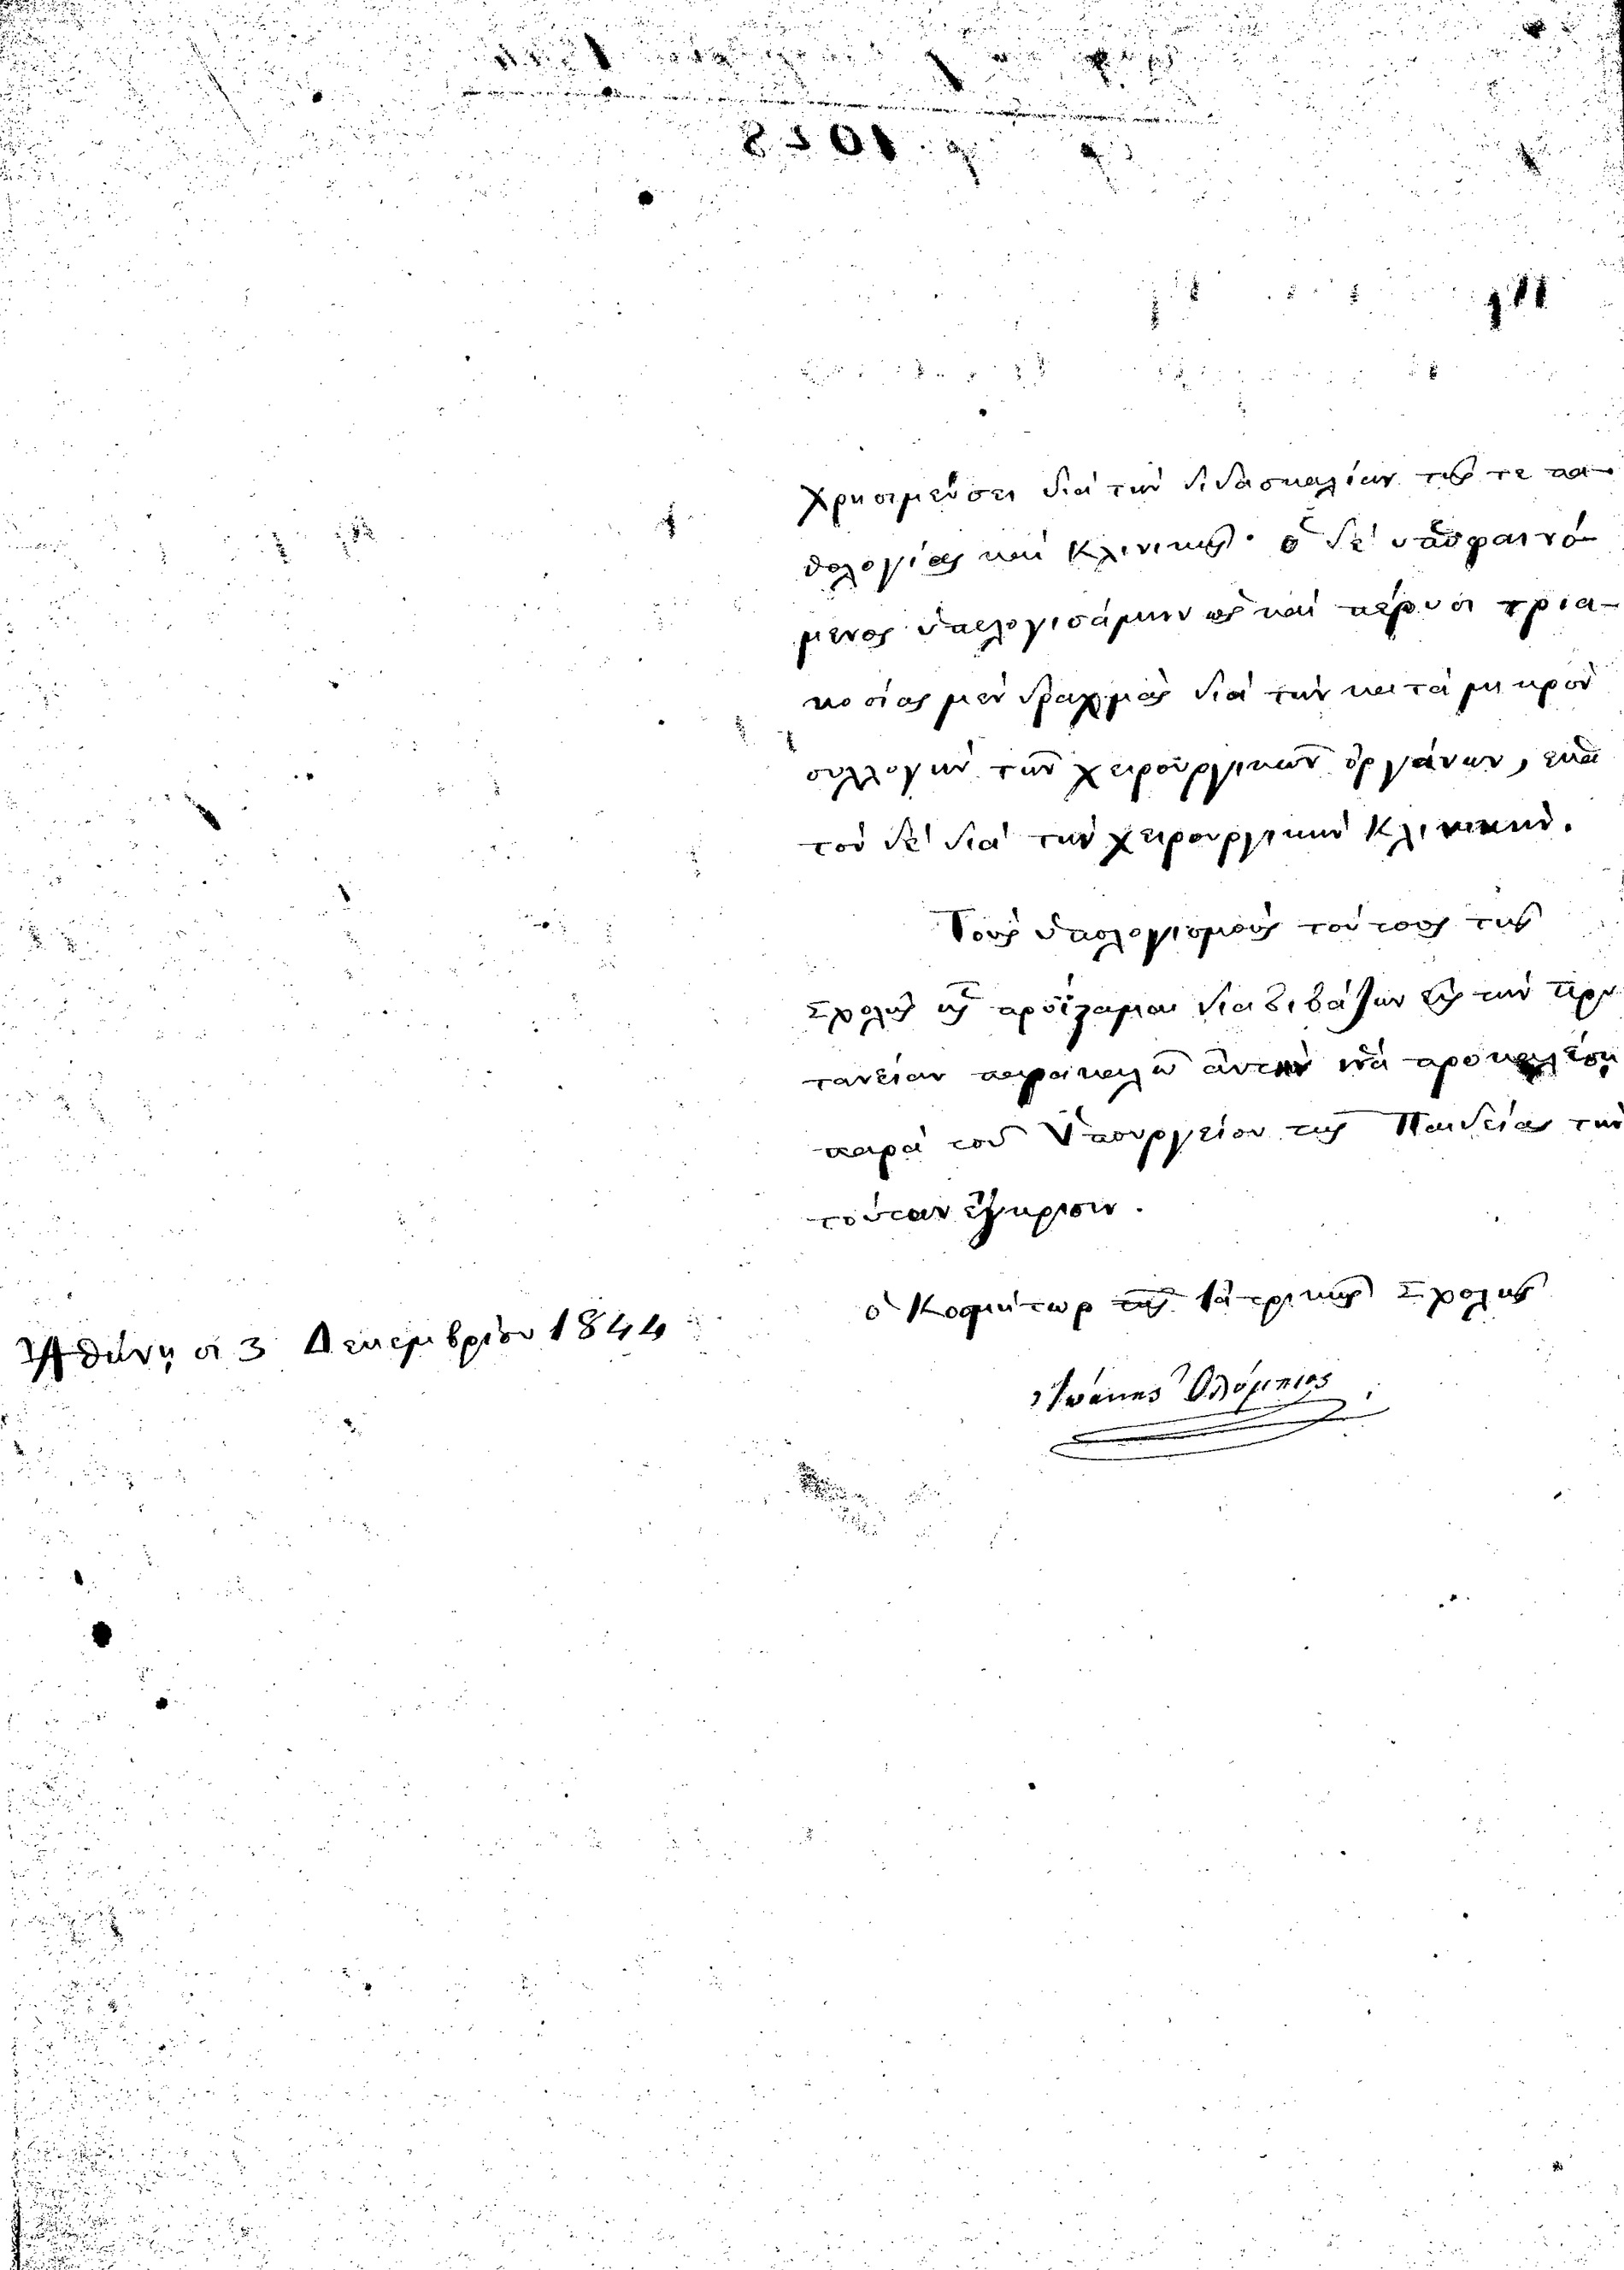 χρησιμεύσει διά τήν διδασκαλίαν τῆς τε πα-
θολογίας καί Κλινικῆς· ὁ δέ ὑποφαινό-
μενος ὑπελογισάμην ὡς καί πέρυσι τρια-
κοσίας μέν δραχμάς διά τήν κατά μικρόν
συλλογήν τῶν χειρουργικῶν ὀργάνων, ἑκα
τόν δέ διά τήν χειρουργικήν Κλινικήν.
Τούς ὑπολογισμούς τούτους τῆς
Σχολῆς εἰς τήν Πρυ
τανείαν παρακαλῶ αὐτήν νά προκαλέσῃ
παρά τοῦ Ὑπουργείου τῆς Παιδείας τήν
τούτων ἔγκρισιν.
ὁ Κοσμήτωρ τῆς Ἰατρικῆς Σχολῆς
Ἀθήνησι 3 Δεκεμβρίου 1844
Ἰωάννης Ὀλύμπιος